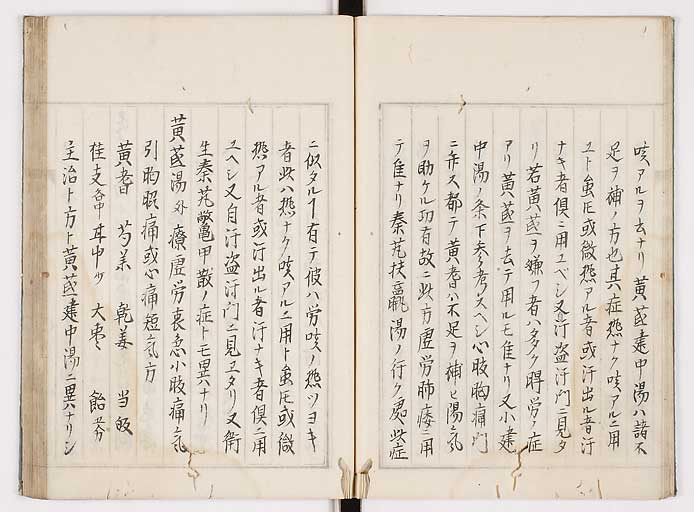 咳アルヲ去ナリ黄茋建中湯ハ諸不
足ヲ補ノ方也其症熱ナク咳アルニ用
ユト虽㕥或微熱アル者或汗出ル者汗
ナキ者倶ニ用ユベシ又汗盗汗門ニ見タ
リ若黄茋ヲ嫌フ者ハタク労ノ症
アリ黄茋ヲ去テ用ルモ佳ナリ又小建
中湯ノ条下参考スヘシ心肢胸痛門
ニ亦ス都テ黄耆ハ不足ヲ補ヒ陽気
ヲ助ケル功有故ニ此方虚労肺痿ニ用
テ佳ナリ秦艽扶羸湯ノ行ク処此症
ニ似タルヿ有テ彼ハ労咳ノ熱ツヨキ
者此ハ熱ナク咳アルニ用ト虽㕥或微
熱アル者或汗出ル者汗ナキ者倶ニ用
ユヘシ又自汗盗汗門ニ見ユタリ又衛
生秦艽鱉甲散ノ症トモ異ナリ
黄茋湯 外 療虚労裏急小肢痛気
引胸脇痛或心痛短気方
黄耆 芍薬 乾姜 当皈
桂支 甘中 大枣 飴
主治ト方ト黄茋建中湯ニ異ナリシ